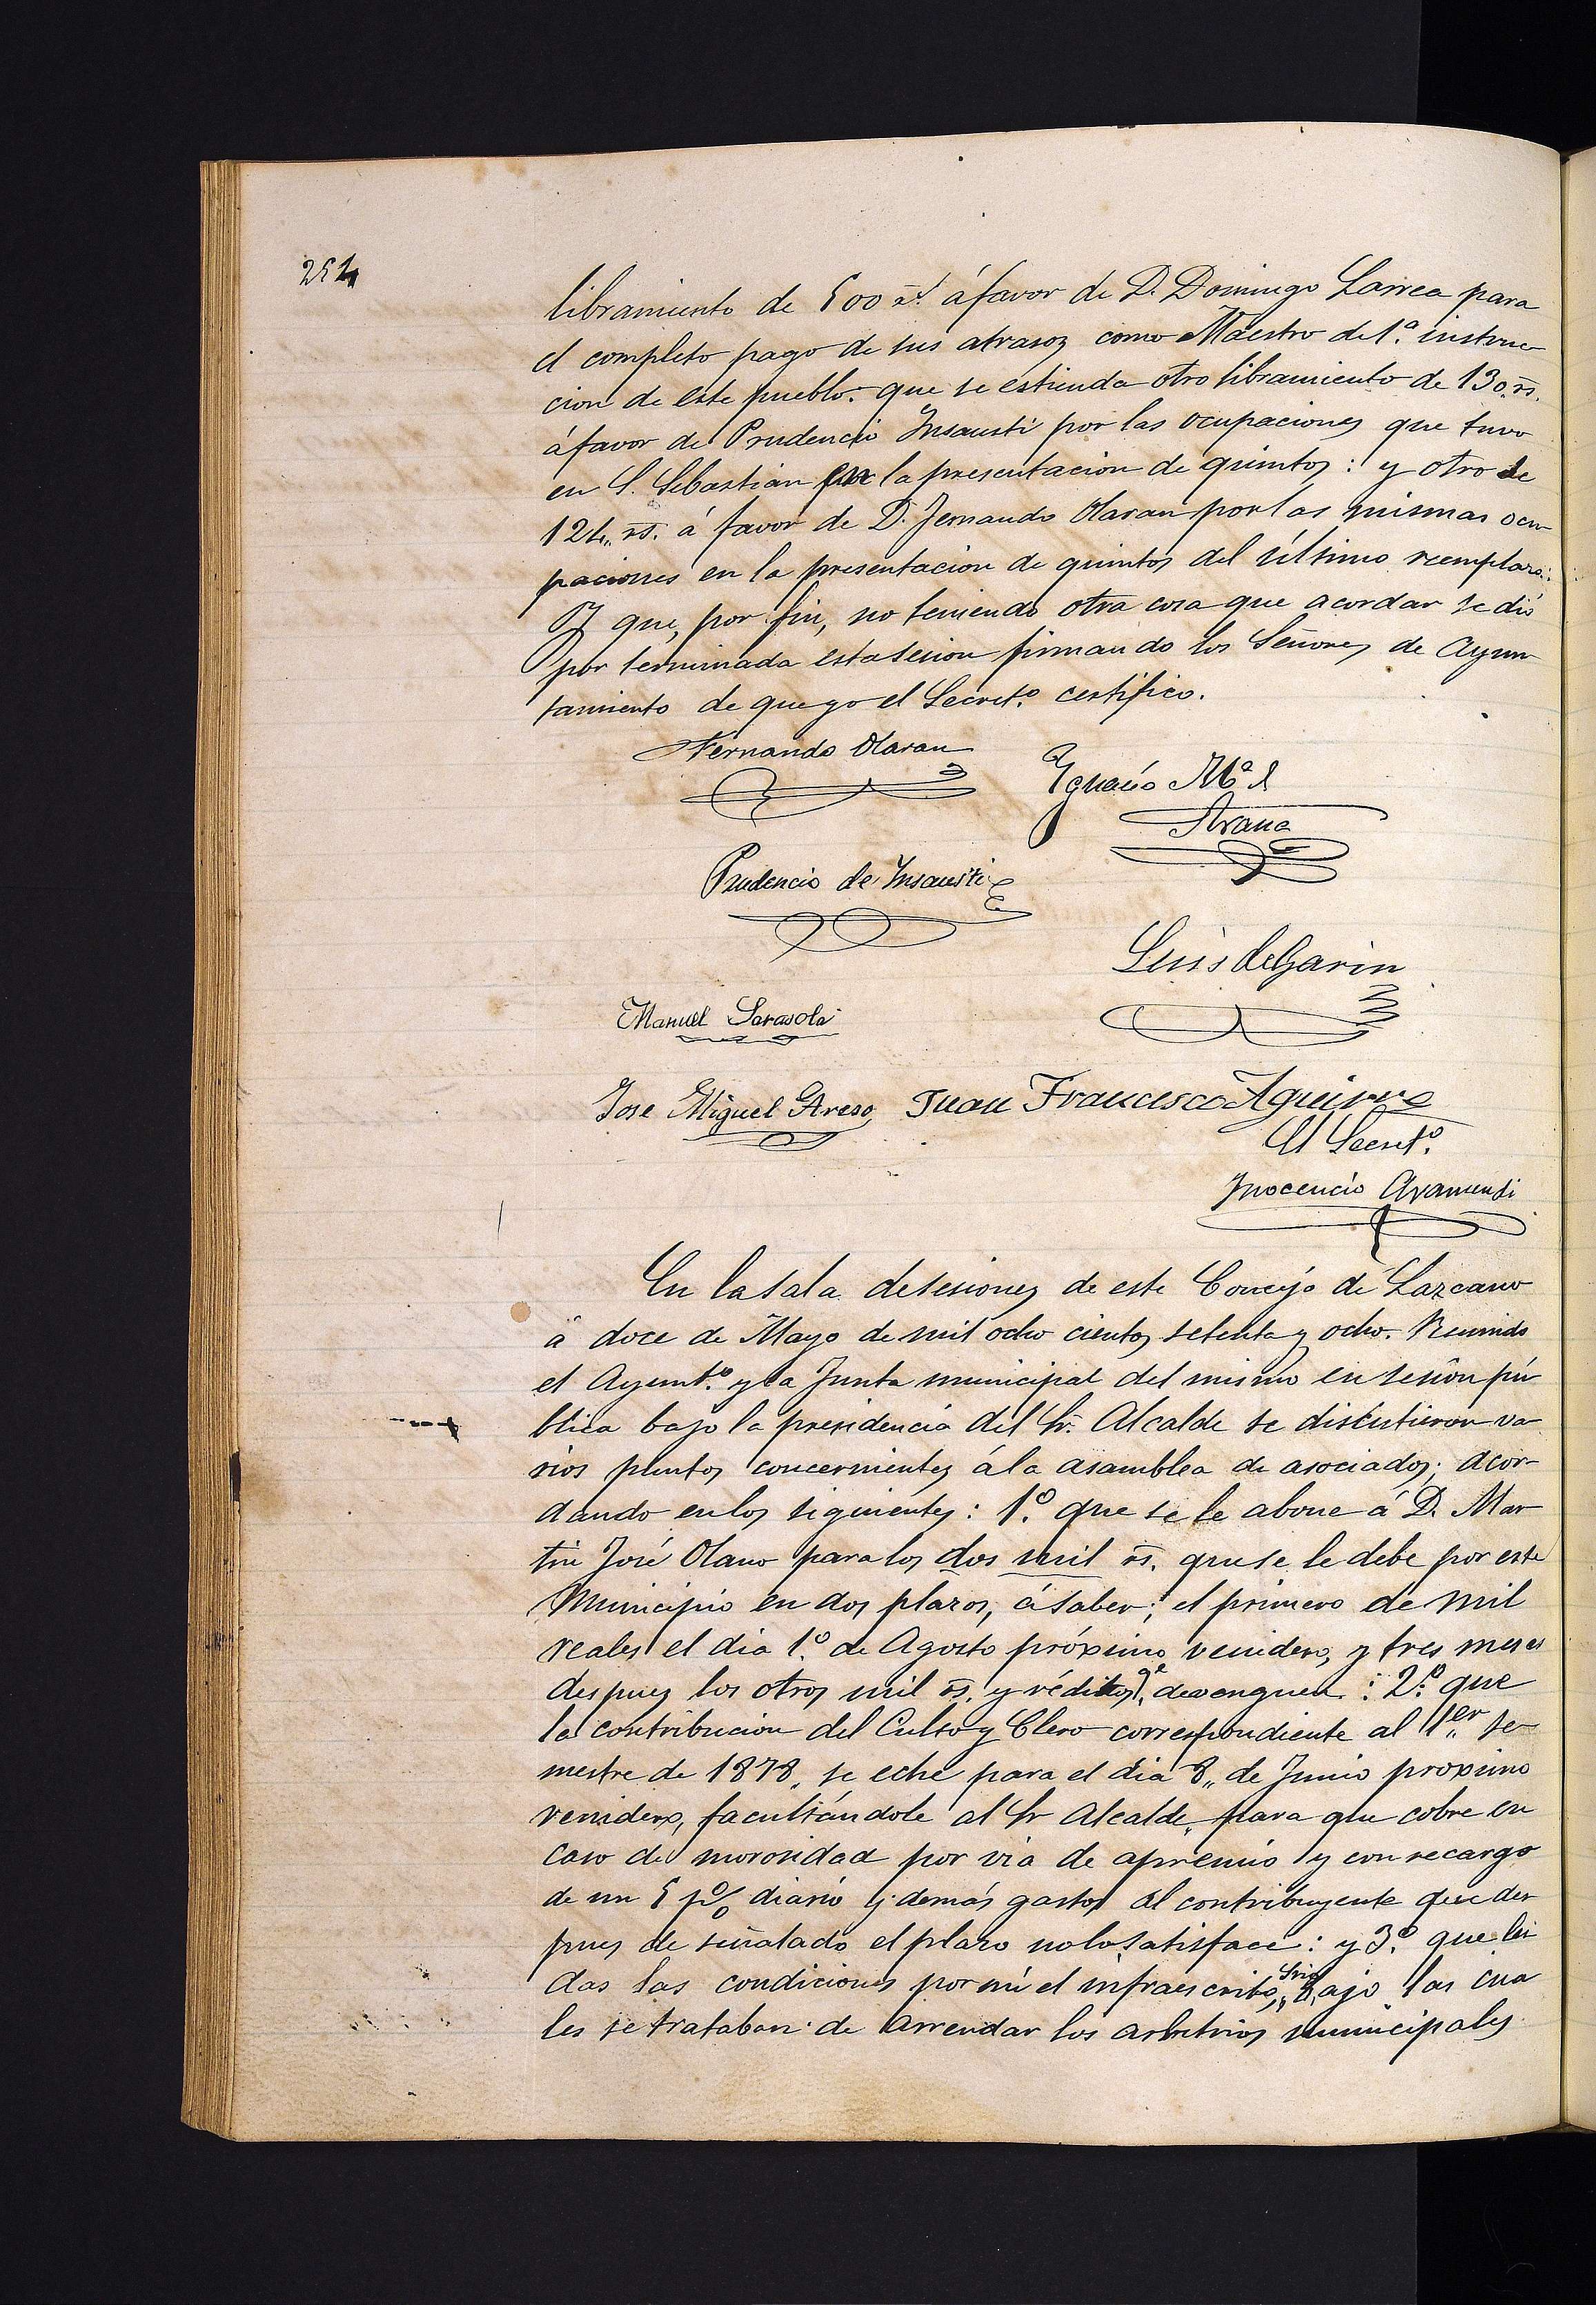 254
libramiento de 500 rs. á favor de D. Domingo Larrea para
el completo pago de sus atrasos como Maestro de 1.ª instruc
cion de este pueblo: que se estienda otro libramiento de 130 rs.
á favor de Prudencio Insausti por las ocupaciones que tuvo
en S. Sebastian en la presentacion de quintos: y otro de
124,, rs. á favor de D. Fernando Olaran por las mismas ocu
paciones en la presentacion de quintos del último reemplazo:
Y que, por fin, no teniendo otra cosa que acordar se dió
por terminada esta sesion firmando los Señores de Ayun
tamiento de que yo el Secret.º certifico.
Fernando Olaran
Ygnacio M.ª d
Arana
Prudencio de Insausti
Luis de Garin
Manuel Sarasola
Jose Miguel Areso Juan Francisco Aguirre
El Secret.º
Inocencio Aramendi
En la sala de sesiones de este Concejo de Lazcano
á doce de Mayo de mil ocho cientos setenta y ocho. Reunido
el Ayunt.º y la Junta municipal del mismo en sesion pú
blica bajo la presidencia del Sr. Alcalde se discutieron va
rios puntos concernientes á la asamblea de asociados; acor-
dando en los siguientes: 1.º que se le abone á D. Mar
tin José Olano para los dos mil rs. que se le debe por este
Municipio en dos plazos, á saber; el primero de mil
reales el dia 1.º de Agosto próximo venidero, y tres meses
despues los otros mil rs. y réditos q.e devenguen: 2.º que
la contribucion del Culto y Clero correspondiente al 1.er se
mestre de 1878,, se eche para el dia 8,, de Junio proximo
venidero, facultándole al Sr Alcalde, para que cobre en
caso de morosidad por via de apremio y con recargo
de un 5 p% diario y demás gastos al contribuyente que des
pues de señalado el plazo no lo satisface: y 3.º que lei
das las condiciones por mí el infraescrito, Srio, bajo las cua
les se trataban de arrendar los arbitrios municipales